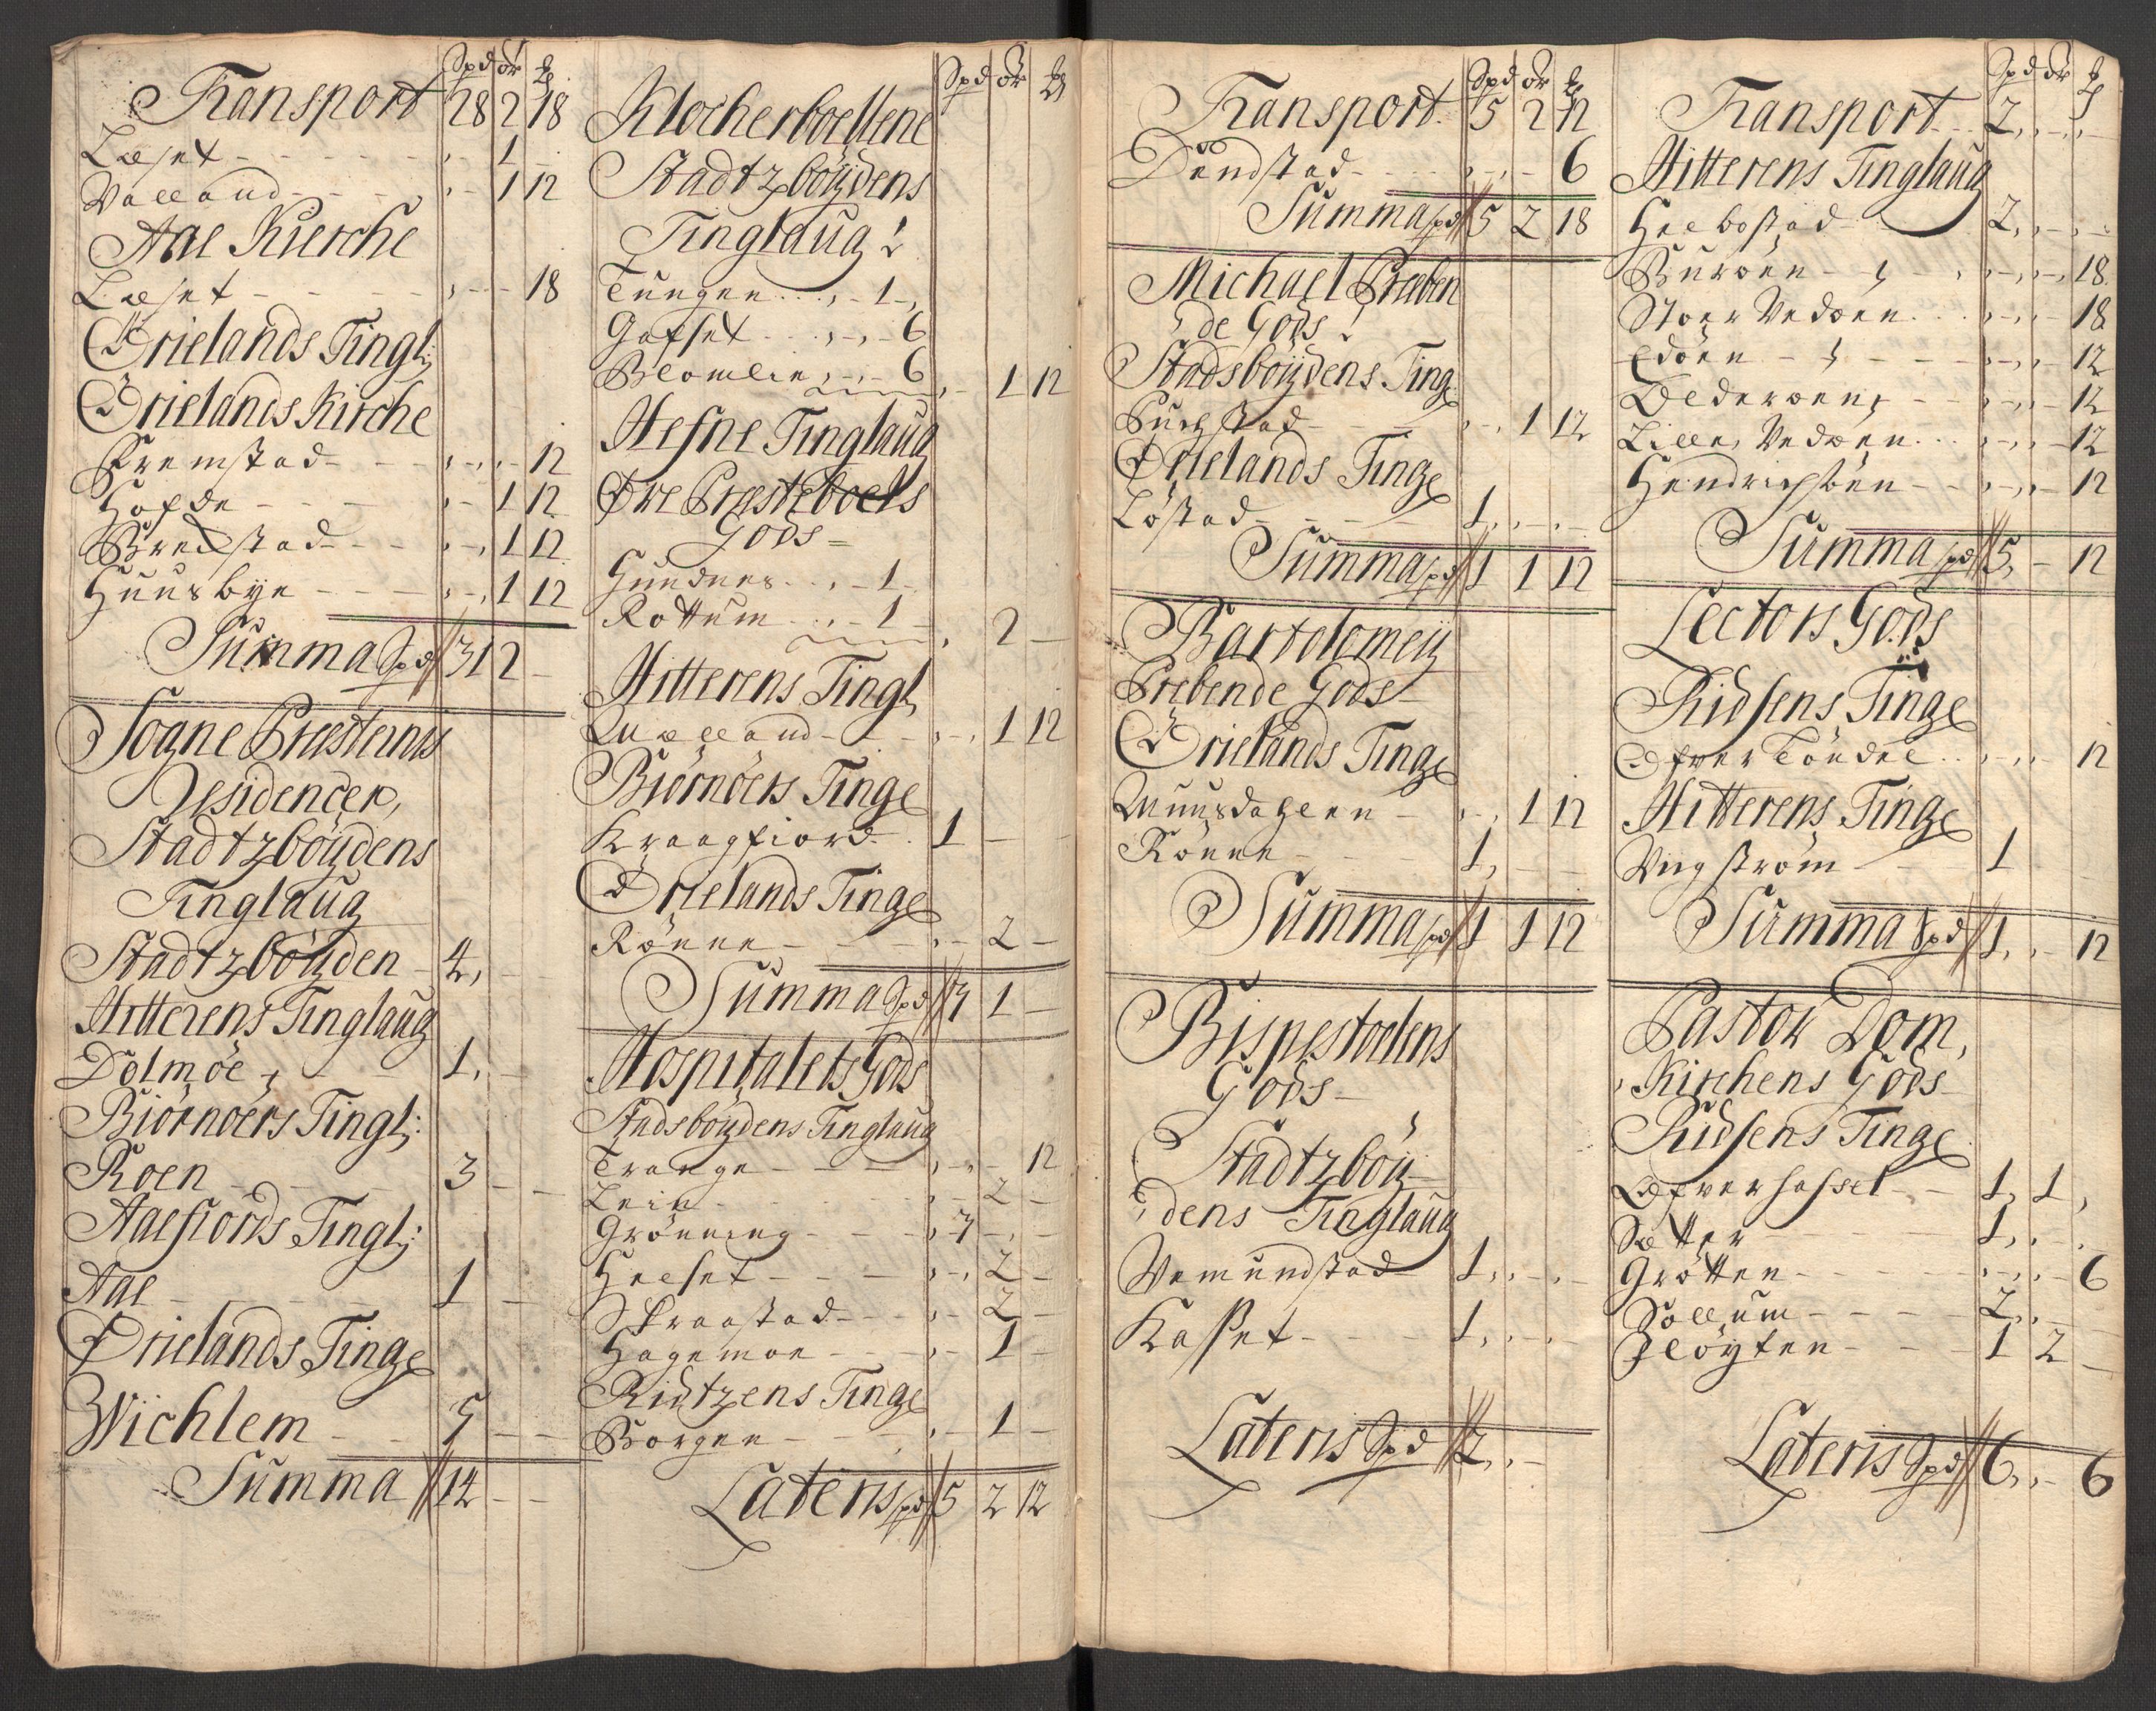 Spd ør ₰
Transport 28 2 18
Læset - - - 1 -
Valland - - - 1 12
Aae Kierche
Læset - - - - 18
Ørielands Tingl:
Ørielands Kirche
Fremstad - - - 12
Hofde - - - 1 12
Bredstad - - - 1 12
Huusbye - - - 1 12
Summa Spd 31 2 -
Sogne Præsternes
Residencer,
Stadtzbøÿdens
Tinglaug
Stadtzbøÿden - 4, - -
Hitterens Tinglaug
Dolmøe - 1, -
Biørnøers Tingl:
Roen - - 3 - -
Aaefiords Tingl:
Aae - - 1 -
Ørielands Tinge
Wichlem - - 5 - -
Summa 14 - -
Spd ør ₰
Klocherboellene
Stadtzbøÿdens
Tinglaug
Tungen - 1 -
Gafset - - 6
Blomlie - - 6 - 1 12
Hefne Tinglaug
Øre Præsteboels
Gods -
Gundnes - 1 -
Rottum - 1 - - 2 -
Hitterens Tingl,
Qualland - - - 1 12
Biørnøers Tinge
Kraagfiord 1 - -
Ørielands Tinge
Rönne - - - 2 -
Summa Spd 3 1 -
Hospitalets Gods
Stadsbøÿdens Tinglaug
Trange - - - 12
Lein - - 2 -
Grönning - - 3 - -
Helset - - - 2 -
Skraastad - - 2 -
Hagemoe - - 1 -
Ridtzens Tinge
Borgen - - - 1 -
Lateris spd 5 2 12
Spd ør ₰
Transport 5 2 12
Dündstad - - - 6
Summa spd 5 2 18
Michael Præben
de Gods
Stadsbøÿdens Ting
Puchstad - - 1 12
Ørielands Tinge
Löstad - - 1 - -
Summa spd 1 1 12
Bartolomeÿ
Prebende Gods
Ørielands Tinge
Muusdahlen - - 1 12
Rönne - 1, - -
Summa spd 1 1 12
Bispestoelens
Gods -
Stadtzbøÿ-
dens Tinglaug
Wemundstad 1 - -
Kaset - - - 1, - -
Lateris Spd 2, - -
Spd ør ₰
Transport 2, - -
Hitterens Tinglaug
Heebostad - 2, - -
Buröen - - - 18
Stoer Vedöen - - 18
Edöen - - - - 12
Ulderoen - - - - 12
Lille Vedöen - - - 12
Hendrichsöen - - - 12
Summa spd 5, - 12
Lectors Gods
Ridsens Tinge
Ofver Töndel - - 12
Hitterens Tinge
Vingström - 1
Summa Spd 1, - 12
Pastor Dom,
Kirchens Gods
Ridsens Tinge
Ofverhassel - - 1, 1,
Sætter - - - 1, - -
Grötten - - - - - 6
Sollum - - - 2, - -
Fløyten - - - 1 2 -
Lateris Spd 6, - 6